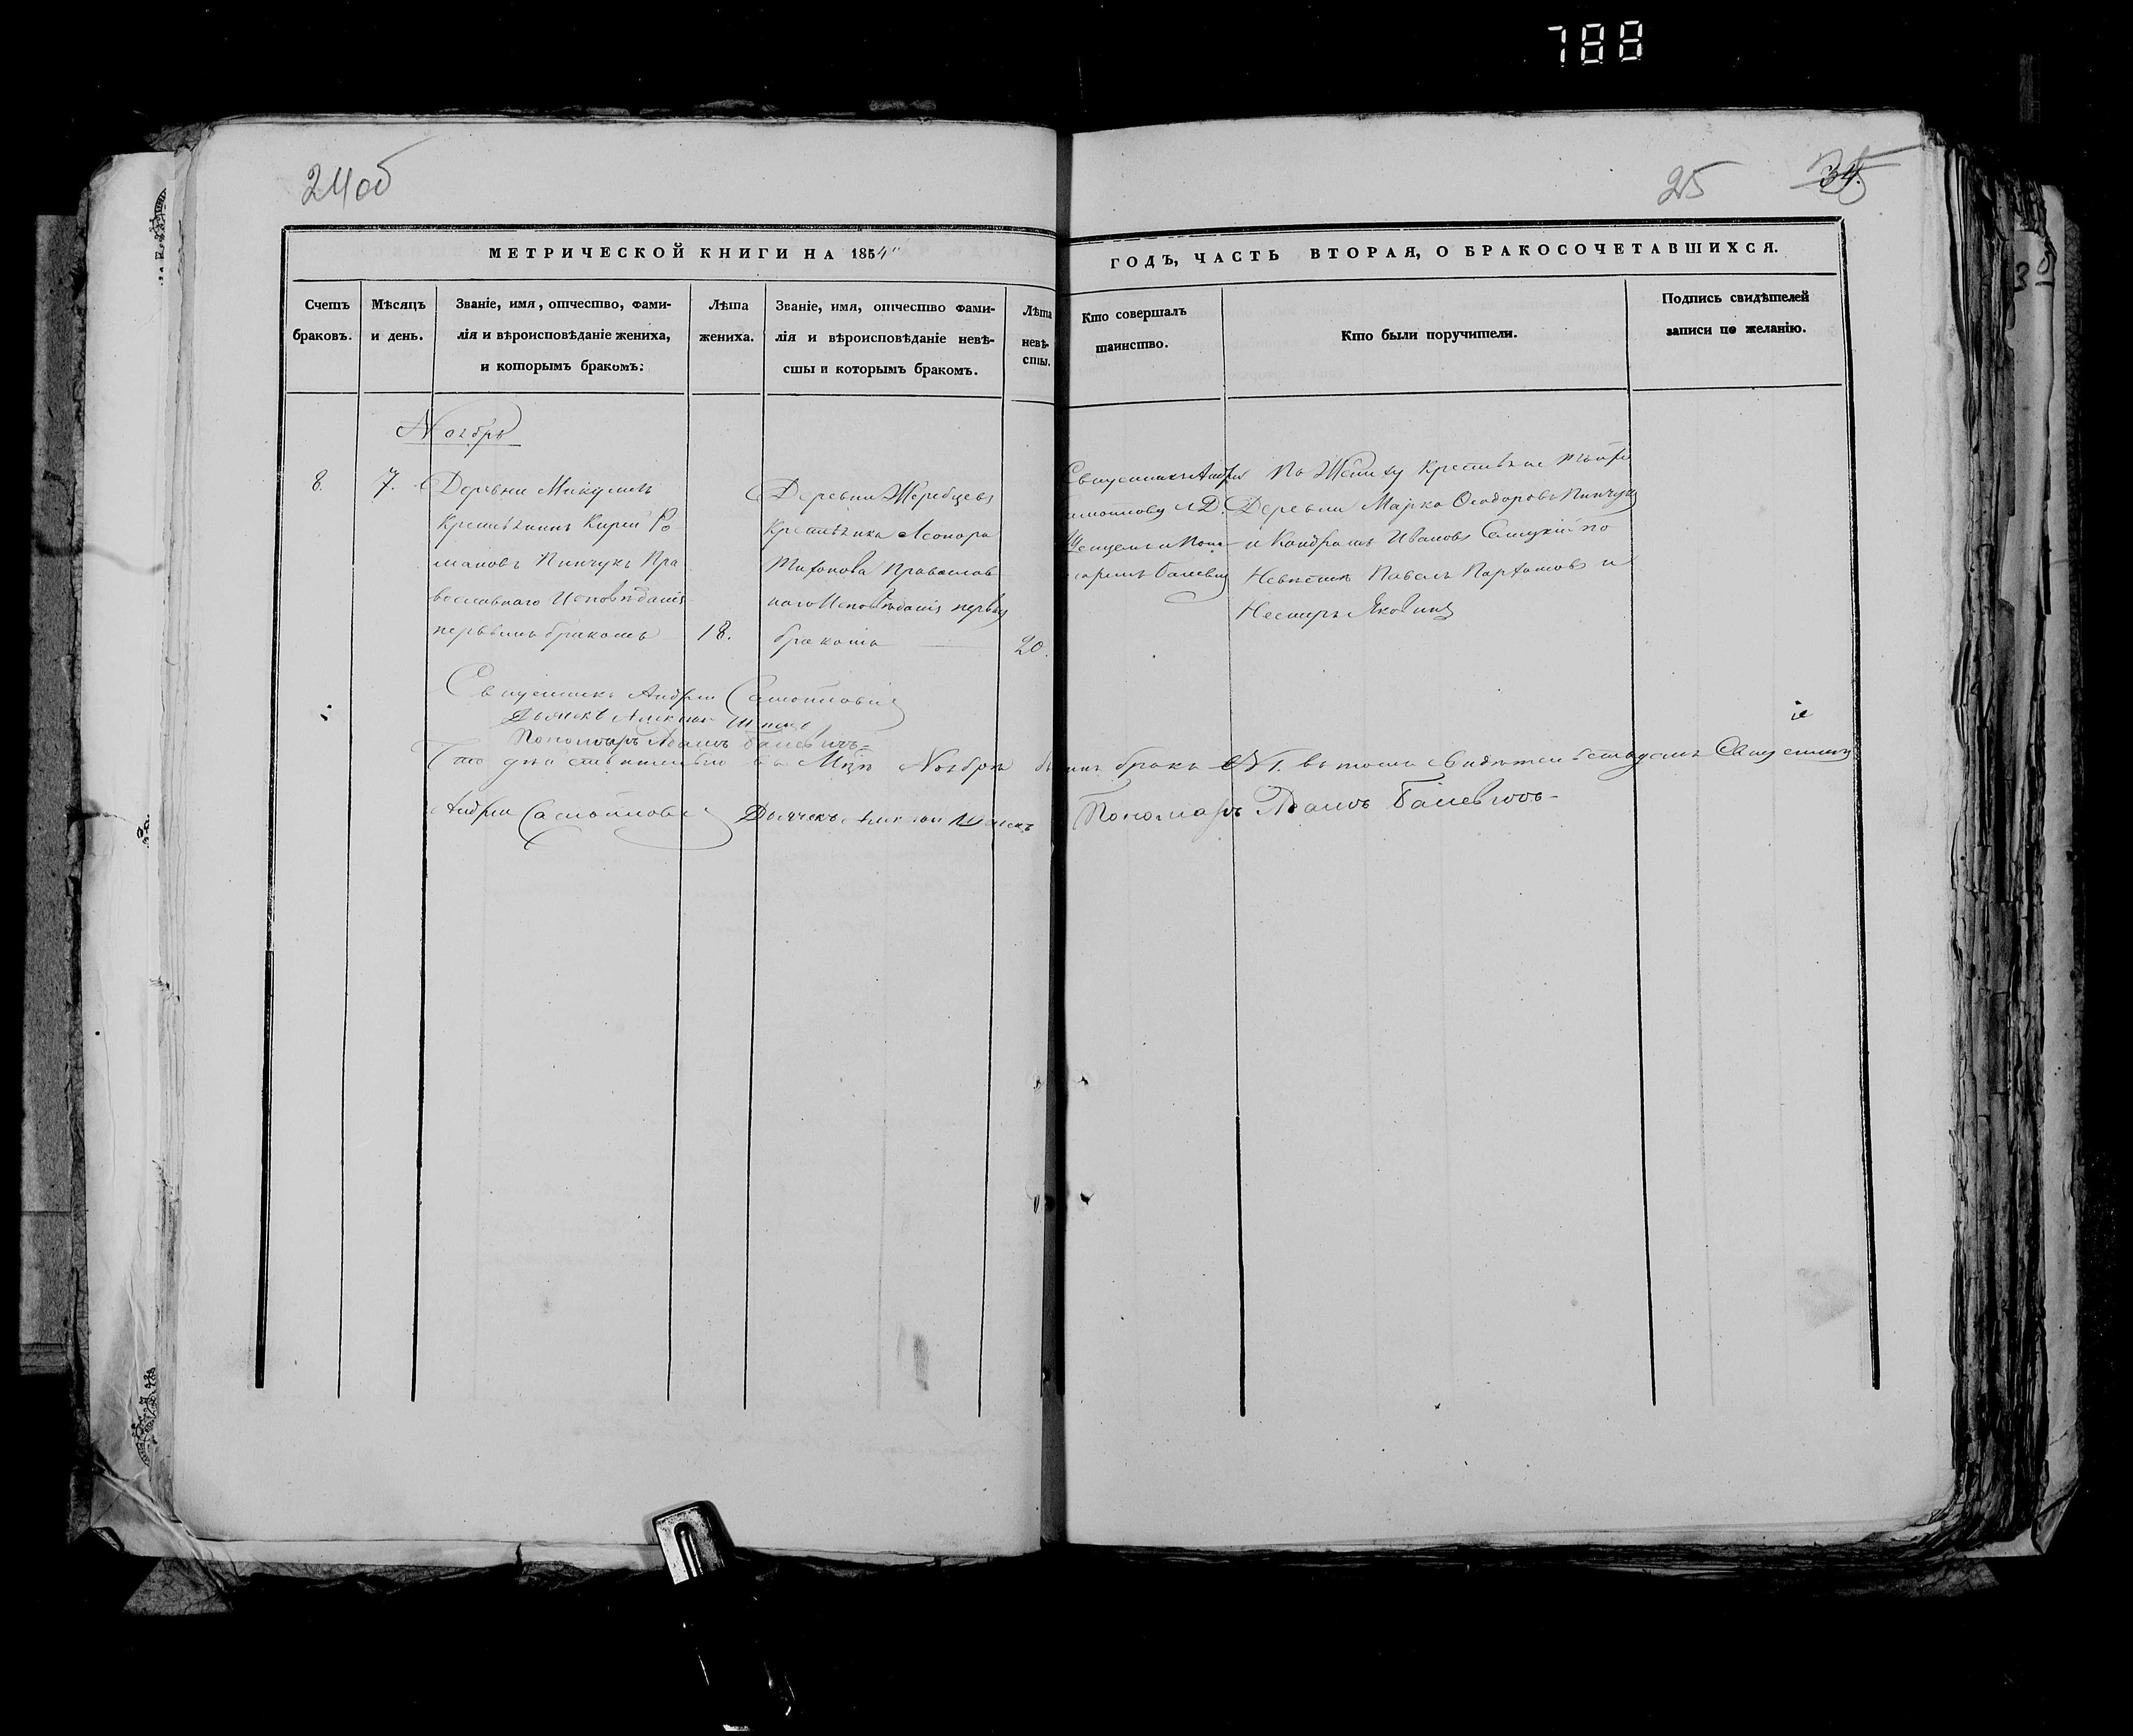 788
24об
25
34.
МЕТРИЧЕСКОЙ КНИГИ НА 1854
ГОДЪ, ЧАСТЬ ВТОРАЯ, О БРАКОСОЧЕТАВШИХСЯ.
Счетъ
браковъ.
Мѣсяцъ
и день.
Званіе, имя, отчество, фами-
лія и вѣроисповѣданіе жениха,
и которымъ бракомъ:
Лѣта
жениха.
Званіе, имя, отчество фами-
лія и вѣроисповѣданіе невѣ-
сты и которымъ бракомъ.
Лѣта
невѣ-
сты.
Кто совершалъ
таинство.
Кто были поручители.
Подпись свидѣтелей
записи по желанію.
Ноябрь
8.
7.
Деревни
Крестьянинъ Ро
мановъ Пинчукъ Пра
вославнаго Исповѣданія
первымъ бракомъ
18.
Деревни Жеребцевъ
Крестьянка
Тихонова Православ
наго Исповѣданія первым
бракомъ
20.
Священникъ Андрей
По Жениху Крестьяне
Деревни Марко Ѳеодоровъ Пинчукъ
и Кондратъ Ивановъ по
Невѣстѣ Павелъ и
Несторъ
Священникъ Андрей Самойловичъ
Дьячекъ
Пономарь Адамъ Балевичъ
Что дѣйствительно въ Мцѣ Ноябрѣ
бракъ №1. въ томъ свидѣтельствуемъ Священникъ
Андрей Самойлович Дьячекъ
Пономарь Адамъ Балевичъ